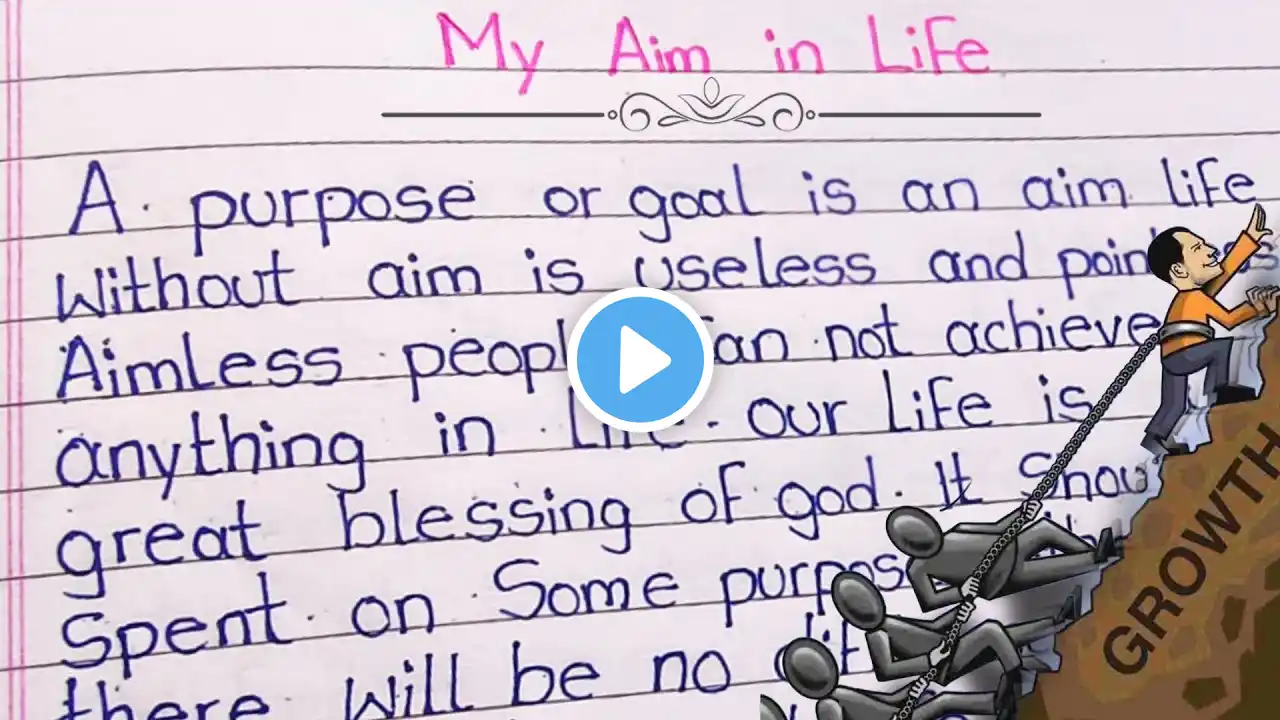 My Aim in Life
A purpose or goal is an aim life
Without aim is useless and
Aimless not achieve
anything in our life is
great blessing of god. It
Spent on Some
there will be no
GROWTH